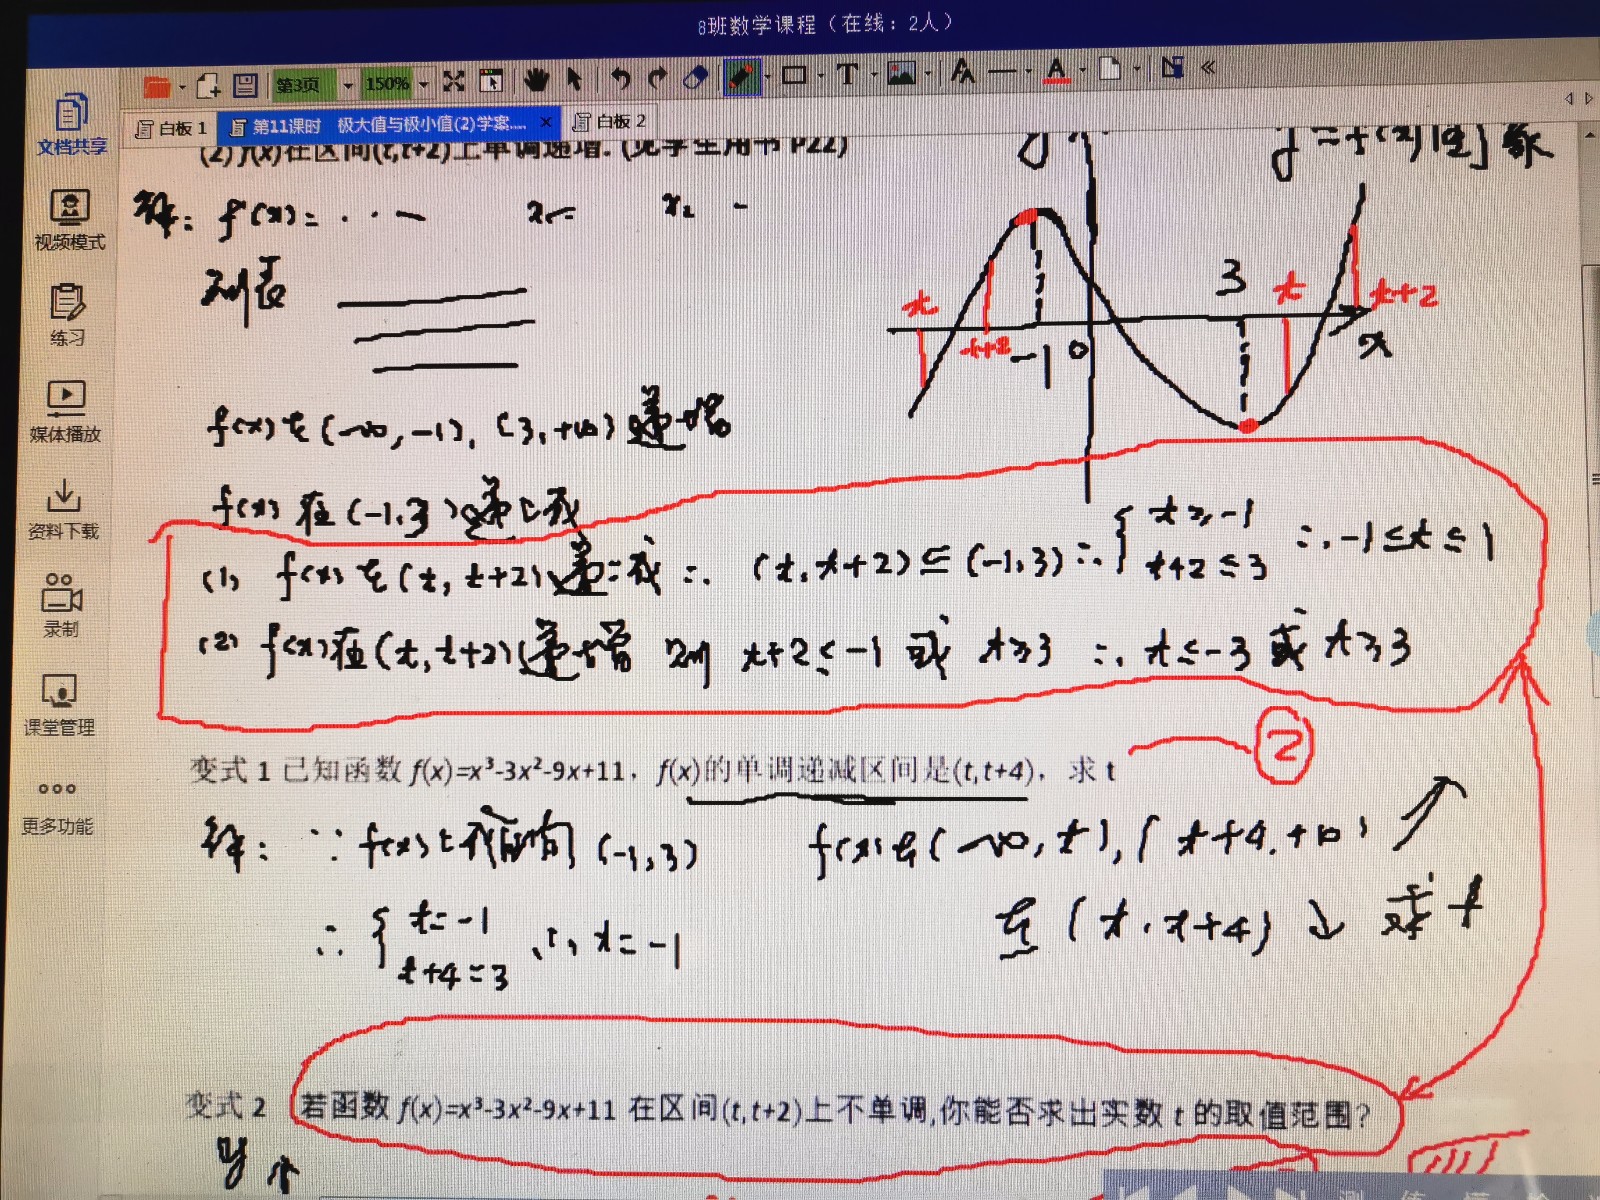 8班数学课程（在线：2人）
第3页 150% T A A «
白板 1 第11课时 极大值与极小值(2)学案.... × 白板 2
文档共享
视频模式
练习
媒体播放
资料下载
录制
课堂管理
更多功能
(2) f(x)在区间(t,t+2)上单调递增. (见学生用书 P22)
y y=f(x)图象
解: f'(x)=··· x₁= x₂ -
列表
t t+2 -1 0 3 t t+2 x
f(x)在(-∞,-1),(3,+∞)递增
f(x)在(-1,3)递减
(1) f(x)在(t,t+2)递减 ∴ (t,t+2)⊆(-1,3) ∴ { t≥-1 t+2≤3 ∴ -1≤t≤1
(2) f(x)在(t,t+2)递增 则 t+2≤-1 或 t≥3 ∴ t≤-3 或 t≥3
②
变式 1 已知函数 f(x)=x³-3x²-9x+11，f(x)的单调递减区间是(t,t+4)，求 t
解: ∵ f(x)减区间(-1,3) f(x)在(-∞,t),(t+4,+∞)↗
∴ { t=-1 t+4=3 ∴ t=-1 在(t,t+4)↘ 求t
变式 2 若函数 f(x)=x³-3x²-9x+11 在区间(t,t+2)上不单调,你能否求出实数 t 的取值范围?
y